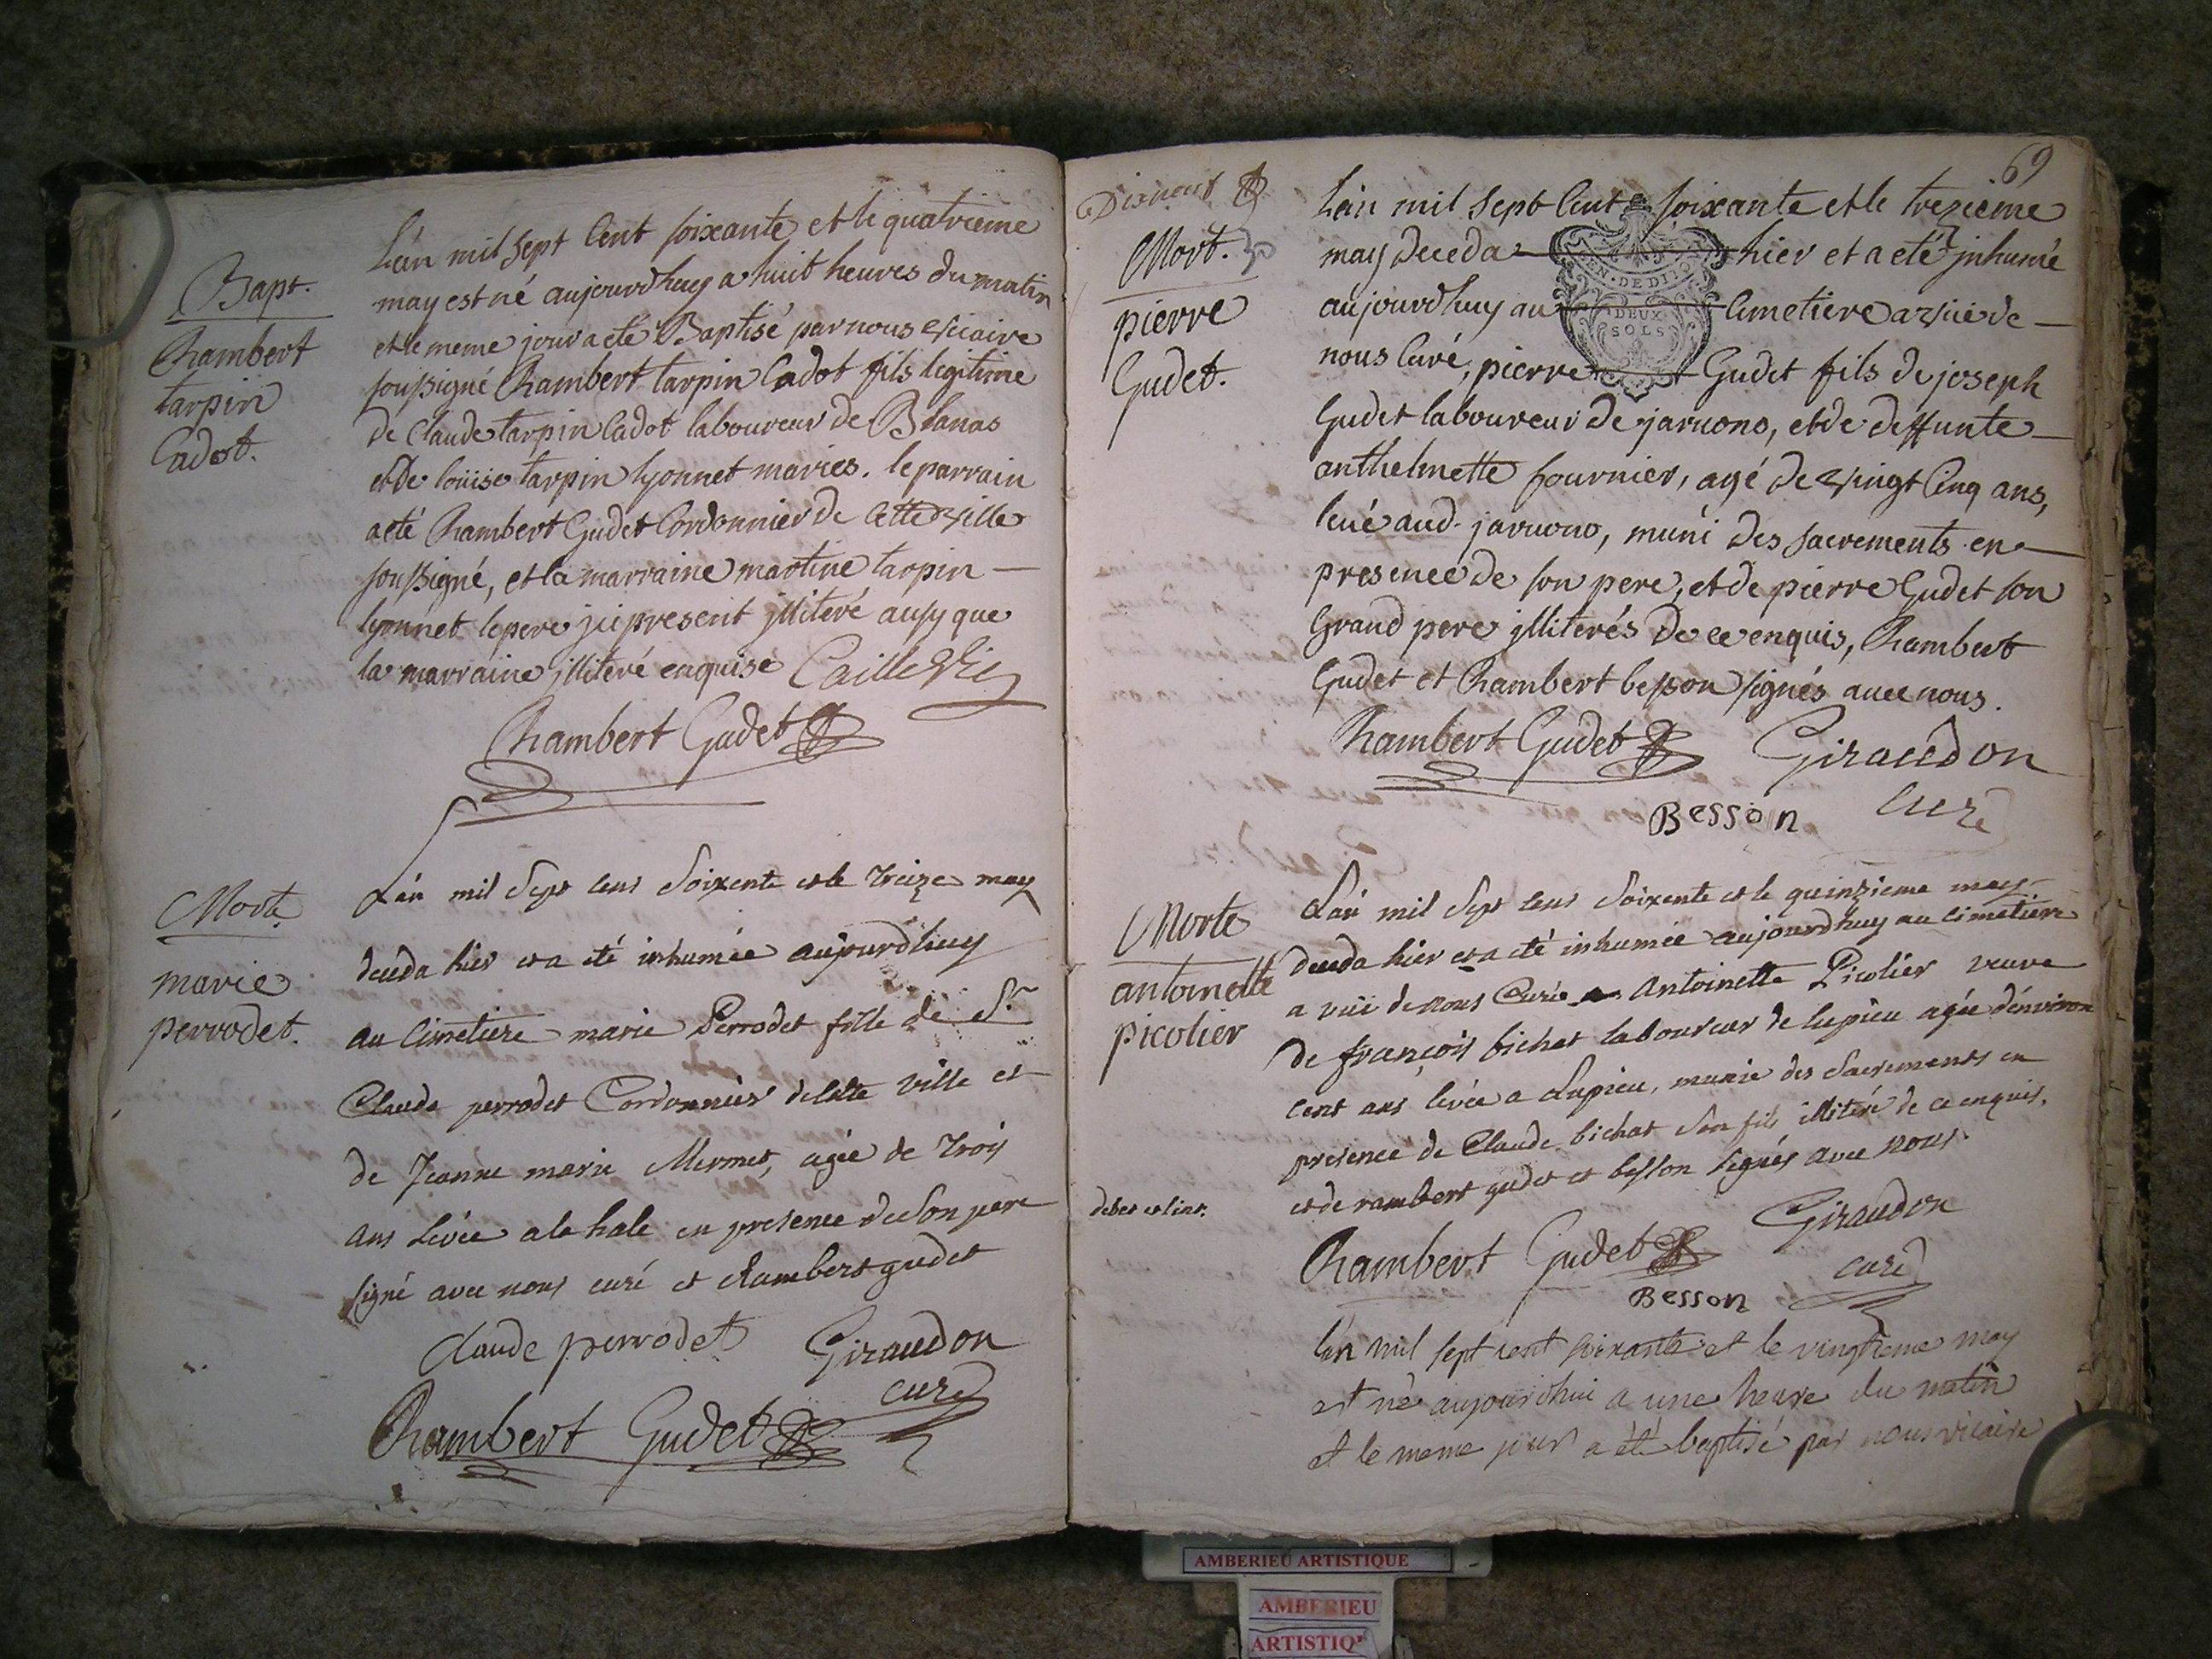 Bapt.
Rambert
tarpin
Cadot.
L'an mil sept Cent soixante et le quatrieme
may est né aujourdhuy a huit heures du matin
et le meme jour a eté Baptisé par nous vicaire
soussigné Rambert tarpin Cadot fils legitime
de Claude tarpin Cadot laboureur de Blanas
et de loüise tarpin lyonnet maries. le parrain
a eté Rambert Gudet Cordonnier de Cette ville
soussigné, et la marraine martine tarpin
lyonnet le pere jci present jlliteré aussy que
la marraine jlliteré enquise Caille Vic
Rambert Gudet
Morte
marie
perrodet.
L'an mil Sept cens Soixente et le treize may
deceda hier et a eté inhumée aujourdhuy
au Cimetiere marie Perrodet fille de Sr.
Claude perrodet Cordonnier de cette ville et
de Jeanne marie Mermet, agée de trois
ans levée a la hale en presence de son pere
signé avec nous curé et Rambert gudet
Claude perrodet Giraudon
curé
Rambert Gudet
69
Dixneuf
Mort.
pierre
Gudet.
L'an mil Sept Cent soixante et le trezieme
may deceda hier et a eté jnhumé
aujourdhuy au Cimetiere a vüe de
nous Curé, pierre Gudet fils de joseph
Gudet laboureur de jaruono, et de deffunte
anthelmette fournier, agé de vingt Cinq ans,
leué aud. jaruono, muni des sacrements en
presence de son pere, et de pierre Gudet son
Grand pere jlliterés de ce enquis, Rambert
Gudet et Rambert besson signés auec nous.
GEN. DE DIJON
DEUX
SOLS
Rambert Gudet Giraudon
Besson curé
Morte
antoinette
picolier
L'an mil Sept cens Soixente et le quinzieme may
deceda hier et a eté inhumée aujourdhuy au cimetiere
a vüe de nous Curé Antoinette Picolier veuve
de françois bichat laboureur de lupieu agée d'environ
cent ans levée a Lupieu, munie des Sacrements en
presence de Claude bichat Son fils illiteré de ce enquis,
et de rambert gudet et besson signés avec nous.
Rambert Gudet Giraudon
Besson curé
l'an mil sept cent soixante et le vingtieme may
est né aujourdhui a une heure du matin
et le meme jour a été baptisé par nous vicaire
AMBERIEU ARTISTIQUE
AMBERIEU
ARTISTIQ